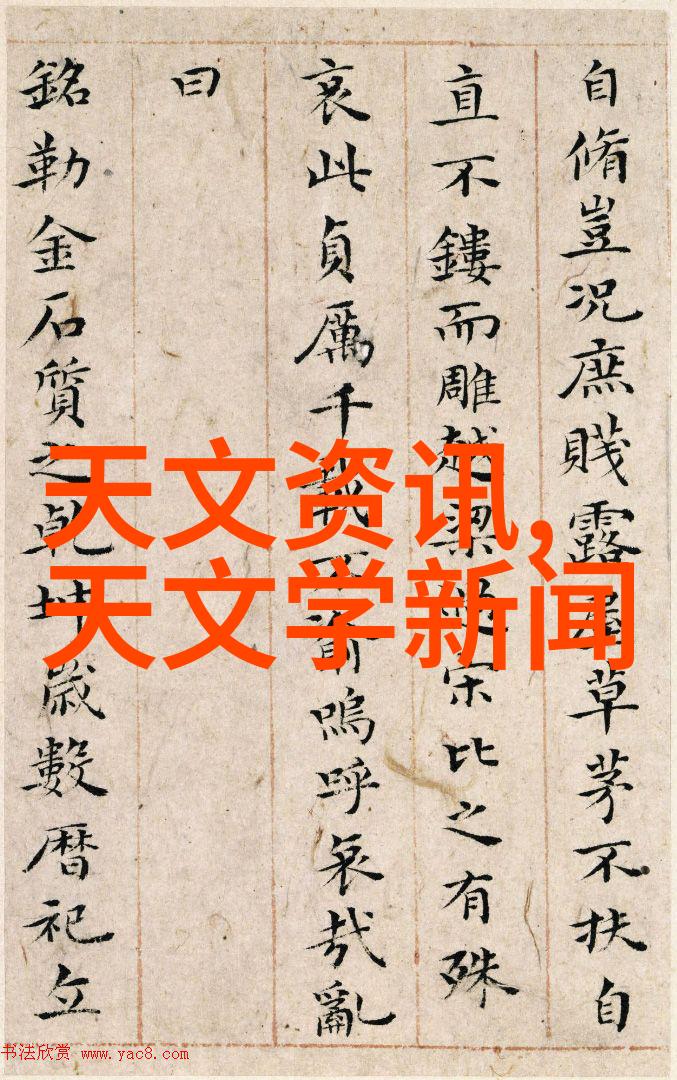 自脩豈況庶賤露草茅不扶自
直不鏤而雕越梁宋比之有殊
哀此貞厲千載不嗚呼哀哉亂
曰
銘勒金石質之乾坤歲數曆祀立
天文资讯,
天文学新闻
书法欣赏 www.yac8.com